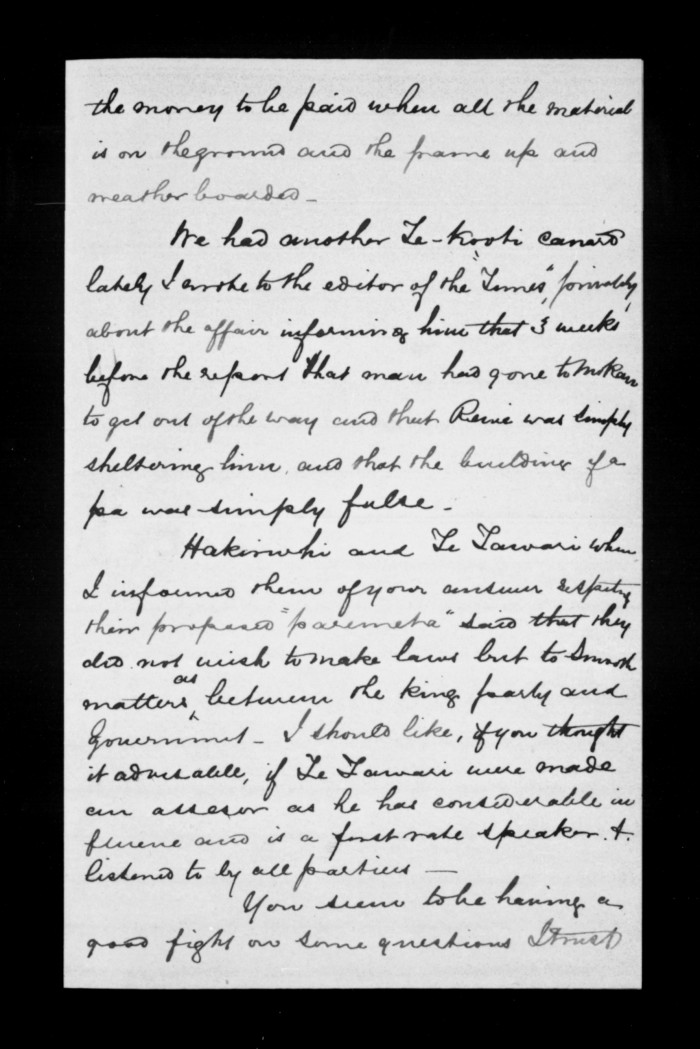 the money to be paid when all the material
is on the ground and the frame up and
weather boarded -
We had another Te-Kooti canard
lately I wrote to the editor of the "Times", privately,
about the affair informing him that 3 weeks
before the report that man had gone to Mokau
to get out of the way and that Rewi was simply
sheltering him, and that the building of a
pa was simply false -
Hakiriwhi and Te Tawari when
I informed them of your answer respecting
their proposed "paremeta" said that they
did not wish to make laws but to smooth
matters as between the king party and
Government - I should like, if you thought
it advisable, if Te Tawari were made
an assesor as he has considerable in
fluence and is a first rate speaker &
listened to by all parties -
You seem to be having a
good fight on some questions I trust